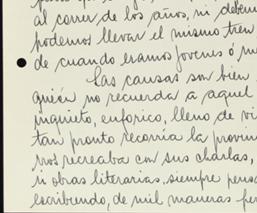 al correr de los años, ni debem
podemos llevar el mismo tren
de cuando eramos jovenes ó
Las causas son bien
quién no recuerda a aquel
inquieto, euforico, lleno de vi
tan pronto recorria la provin
nos recreaba con sus charlas,
ni obras literarias, siempre pens
escribiendo, de mil maneras